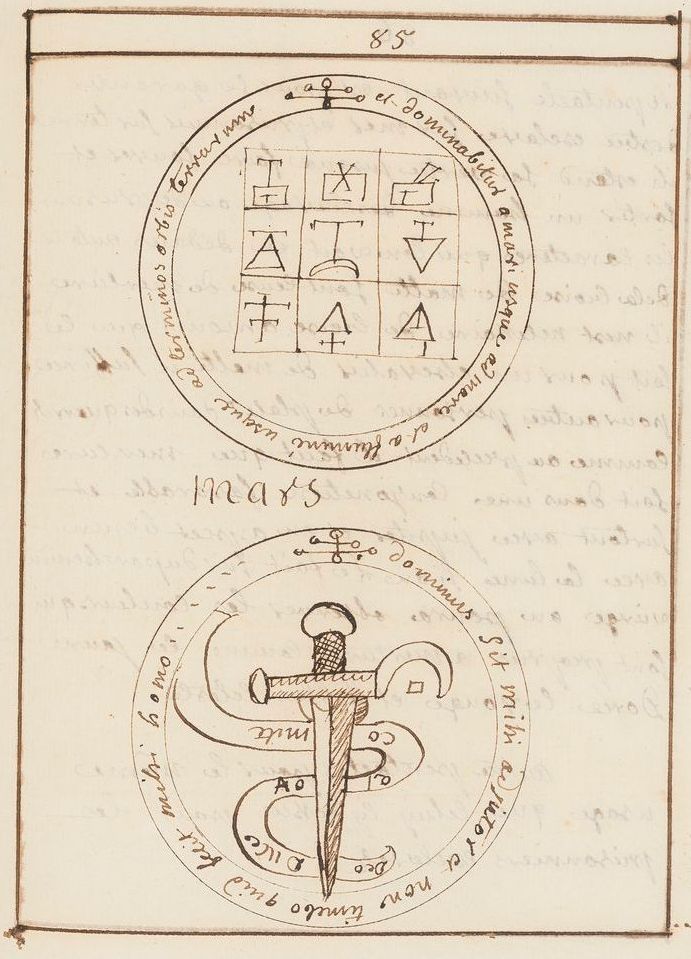 85
et dominabitur amari usque ad mare et a flumine usque ad terminos orbis terrarum
Mars
Dominus sit mihi adjutor et non timebo quid facit mihi homo
mite
co
Duce
Deo